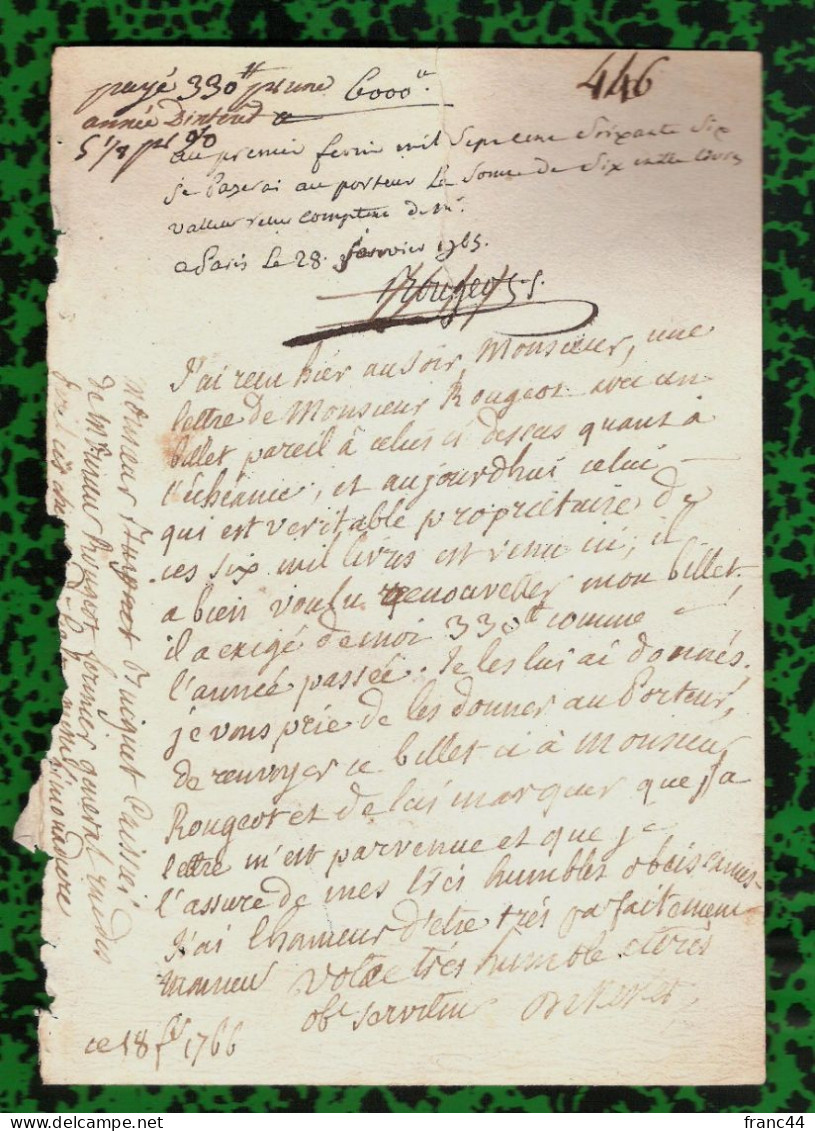 446
payé 330ᵗᵗ pr une
année D'intérêt
5 1/8 pr %
6000ᵗᵗ
au premier fevrier mil Sept cens Soixante Six
Je Paÿerai au porteur La Somme de Six mille livres
valleur reçue comptant de Mr.
a Paris Le 28. Janvier 1765.
Rougeot
J'ai recu hier au soir, Monsieur, une
lettre de Monsieur Rougeot avec un
billet pareil à celui ci dessus quant à
l'échéance, et aujourdhui celui
qui est veritable propriétaire de
ces six mil livres est venu ici, il
a bien voulu renouveller mon billet,
il a exigé de moi 330ᵗᵗ comme
l'année passée. Je les lui ai donnés,
je vous prie de les donner au Porteur,
de renvoyer ce billet ci à Monsieur
Rougeot et de lui marquer que sa
lettre m'est parvenue et que je
l'assure de mes très humbles obeissances
J'ai l'honneur d'etre très parfaitement
Monsieur Votre très humble et très
obt serviteur
ce 18 fer 1766
Monsieur Huguet Caissier
de Monsieur Rougeot fermier general rue des
franc44